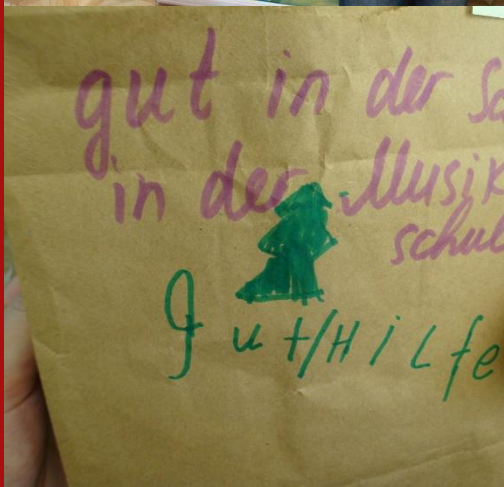 gut in der Sc
in der Musik
schul
gut/HiLfe